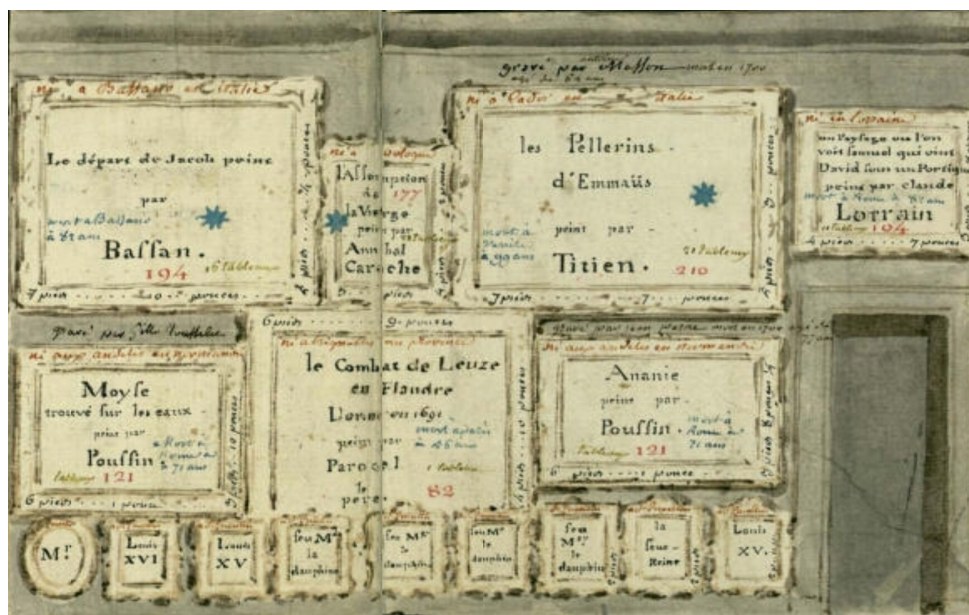 gravé par antoine Masson mort en 1700
né a Bassano en italie
Le départ de Jacob peint
par
mort a Bassano
à 82 ans
Bassan.
194
7 pieds
pouces
né a Bologne
l'Assomption
de 177
la Vierge
peint par
Annibal
Carache
né a Cador en italie
les Pellerins
d'Emmaüs
peint par
mort à
Venise
à 99 ans
Titien. 210
7 pieds 7 pouces
né en Lorraine
un Paysage ou l'on
voit samuel qui vint
David sous un Portique
peint par claude
mort à Rome à 82 ans
Lorrain
194
7 pouces
né aux andelis en normandie
Moyse
trouvé sur les eaux
peint par
Poussin
mort à
Rome à
71 ans
tableaux 121
6 pieds 1 pouce
6 pieds 9 pouces
le Combat de Leuze
en Flandre
Donné en 1691
peint par
Parocel
le
pere.
82
né aux andelis en normandie
Ananie
peint par
Poussin.
mort à
Rome à
71 ans
tableaux 121
6 pieds 1 pouce
Mr
Louis
XVI
Louis
XV
feu Me
la
dauphine
la
dauphine
feu Mr
le
dauphin
feu
Mgr
le
dauphin
la
feue
Reine
Louis
XV.